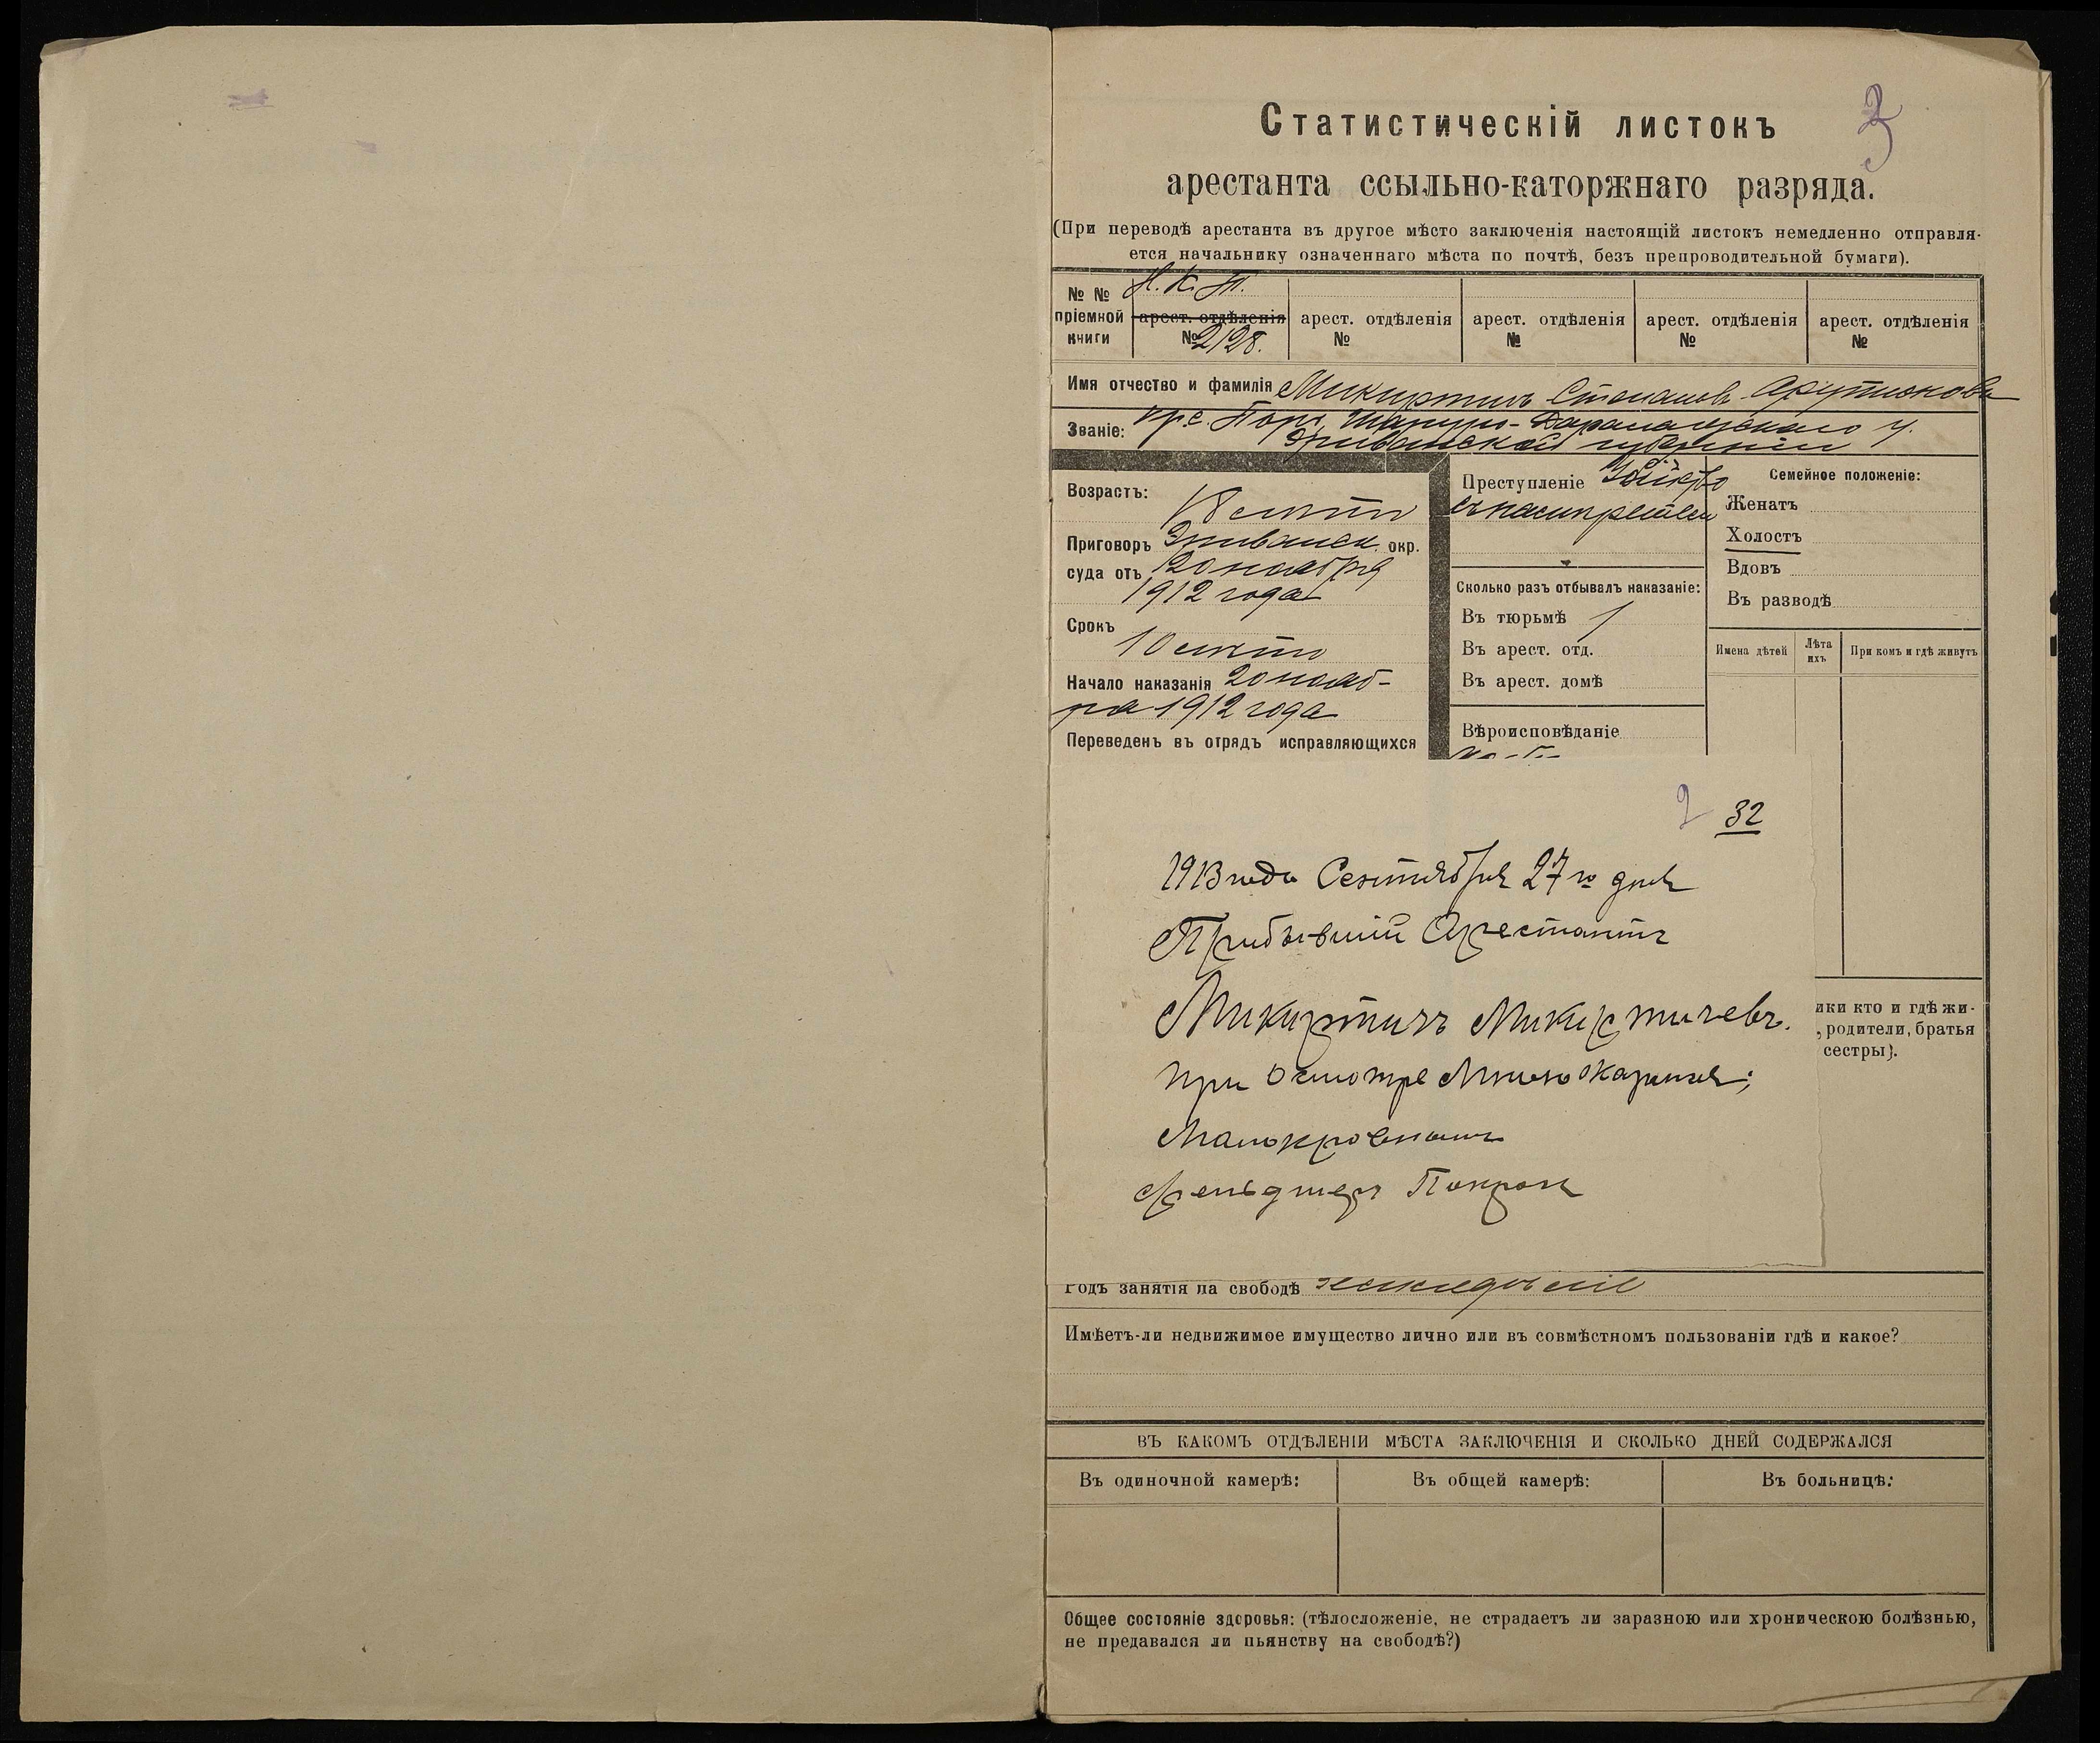 3
Статистическій листокъ
арестанта ссыльно-каторжнаго разряда.
(При переводѣ арестанта въ другое мѣсто заключенія настоящій листокъ немедленно отправля-
ется начальнику означеннаго мѣста по почтѣ, безъ препроводительной бумаги).
№ № пріемной книги
Н. К. Т.
арест. отдѣленія № 2128.
арест. отдѣленія №
арест. отдѣленія №
арест. отдѣленія №
арест. отдѣленія №
Имя отчество и фамилія Микиртичъ Степановъ Арутюновъ
Званіе: кре. Шаруро-Даралагезскаго у.
Эриванской губерніи
Возрастъ:
18 лѣтъ
Приговоръ Эриванск. окр.
суда отъ 20 ноября
1912 года
Срокъ
10 лѣтъ
Начало наказанія 20 нояб-
ря 1912 года
Переведенъ въ отрядъ исправляющихся
Преступленіе Убійство
Сколько разъ отбывалъ наказаніе:
Въ тюрьмѣ 1
Въ арест. отд.
Въ арест. домѣ
Вѣроисповѣданіе
Семейное положеніе:
Женатъ
Холостъ
Вдовъ
Въ разводѣ
Имена дѣтей
Лѣта ихъ
При комъ и гдѣ живутъ
2 32
1913 года Сентября 27го дня
Прибывшій Арестантъ
Микиртичъ Микиртичевъ.
при осмотре
Малокровенъ
Фельдшеръ
ики кто и гдѣ жи-
, родители, братья
сестры).
Родъ занятія на свободѣ земледѣліе
Имѣетъ-ли недвижимое имущество лично или въ совмѣстномъ пользованіи гдѣ и какое?
ВЪ КАКОМЪ ОТДѢЛЕНІИ МѢСТА ЗАКЛЮЧЕНІЯ И СКОЛЬКО ДНЕЙ СОДЕРЖАЛСЯ
Въ одиночной камерѣ:
Въ общей камерѣ:
Въ больницѣ:
Общее состояніе здоровья: (тѣлосложеніе, не страдаетъ ли заразною или хроническою болѣзнью,
не предавался ли пьянству на свободѣ?)